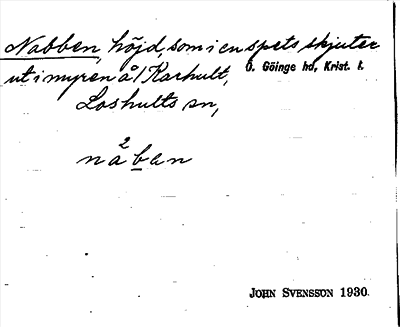 Nabben, höjd, som i en spets skjuter
ut i myren å Karhult,
Ö. Göinge hd, Krist. l.
Loshults sn,
2
naben
JOHN SVENSSON 1930.